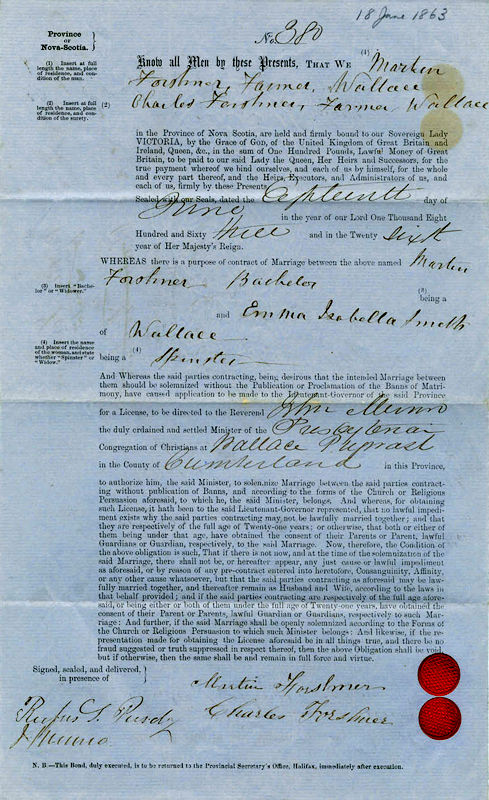 18 June 1863
Province
OF
Nova-Scotia.
No. 380
Know all Men by these Presents, THAT WE (1) Martin
(1) Insert at full
length the name, place
of residence, and con-
dition of the man.
Forshner, Farmer, Wallace
(2) Insert at full
length the name, place
of residence, and con-
dition of the surety.
(2) Charles Forshner, Farmer, Wallace
in the Province of Nova Scotia, are held and firmly bound to our Sovereign Lady
VICTORIA, by the Grace of GOD, of the United Kingdom of Great Britain and
Ireland, Queen, &c., in the sum of One Hundred Pounds, Lawful Money of Great
Britain, to be paid to our said Lady the Queen, Her Heirs and Successors, for the
true payment whereof we bind ourselves, and each of us by himself, for the whole
and every part thereof, and the Heirs, Executors, and Administrators of us, and
each of us, firmly by these Presents.
Sealed with our Seals, dated the day of
June in the year of our Lord One Thousand Eight
Hundred and Sixty three and in the Twenty sixth
year of Her Majesty's Reign.
WHEREAS there is a purpose of contract of Marriage between the above named Martin
(3) Insert "Bache-
lor" or "Widower."
Forshner Bachelor
(3)
being a
and Emma Isabella Smith
(4) Insert the name
and place of residence
of the woman, and state
whether "Spinster" or
"Widow."
of Wallace
being a (4) Spinster
And Whereas the said parties contracting, being desirous that the intended Marriage between
them should be solemnized without the Publication or Proclamation of the Banns of Matri-
mony, have caused application to be made to the Lieutenant-Governor of the said Province
for a License, to be directed to the Reverend John Munro
the duly ordained and settled Minister of the Presbyterian
Congregation of Christians at Wallace
in the County of Cumberland in this Province,
to authorize him, the said Minister, to solemnize Marriage between the said parties contract-
ing without publication of Banns, and according to the forms of the Church or Religious
Persuasion aforesaid, to which he, the said Minister, belongs. And whereas, for obtaining
such License, it hath been to the said Lieutenant-Governor represented, that no lawful impedi-
ment exists why the said parties contracting may not be lawfully married together; and that
they are respectively of the full age of Twenty-one years; or otherwise, that both or either of
them being under that age, have obtained the consent of their Parents or Parent, lawful
Guardians or Guardian, respectively, to the said Marriage. Now, therefore, the Condition of
the above obligation is such, That if there is not now, and at the time of the solemnization of the
said Marriage, there shall not be, or hereafter appear, any just cause or lawful impediment
as aforesaid, or by reason of any pre-contract entered into heretofore, Consanguinity, Affinity,
or any other cause whatsoever, but that the said parties contracting as aforesaid may be law-
fully married together, and thereafter remain as Husband and Wife, according to the laws in
that behalf provided; and if the said parties contracting are respectively of the full age afore-
said, or being either or both of them under the full age of Twenty-one years, have obtained the
consent of their Parent or Parents, lawful Guardian or Guardians, respectively to such Mar-
riage: And further, if the said Marriage shall be openly solemnized according to the Forms of
the Church or Religious Persuasion to which such Minister belongs: And likewise, if the re-
presentation made for obtaining the License aforesaid be in all things true, and there be no
fraud suggested or truth suppressed in respect thereof, then the above Obligation shall be void,
but if otherwise, then the same shall be and remain in full force and virtue.
Signed, sealed, and delivered,
in presence of
Martin Forshner
Rufus S. Purdy Charles Forshner
J. Munro
N. B.—This Bond, duly executed, is to be returned to the Provincial Secretary's Office, Halifax, immediately after execution.